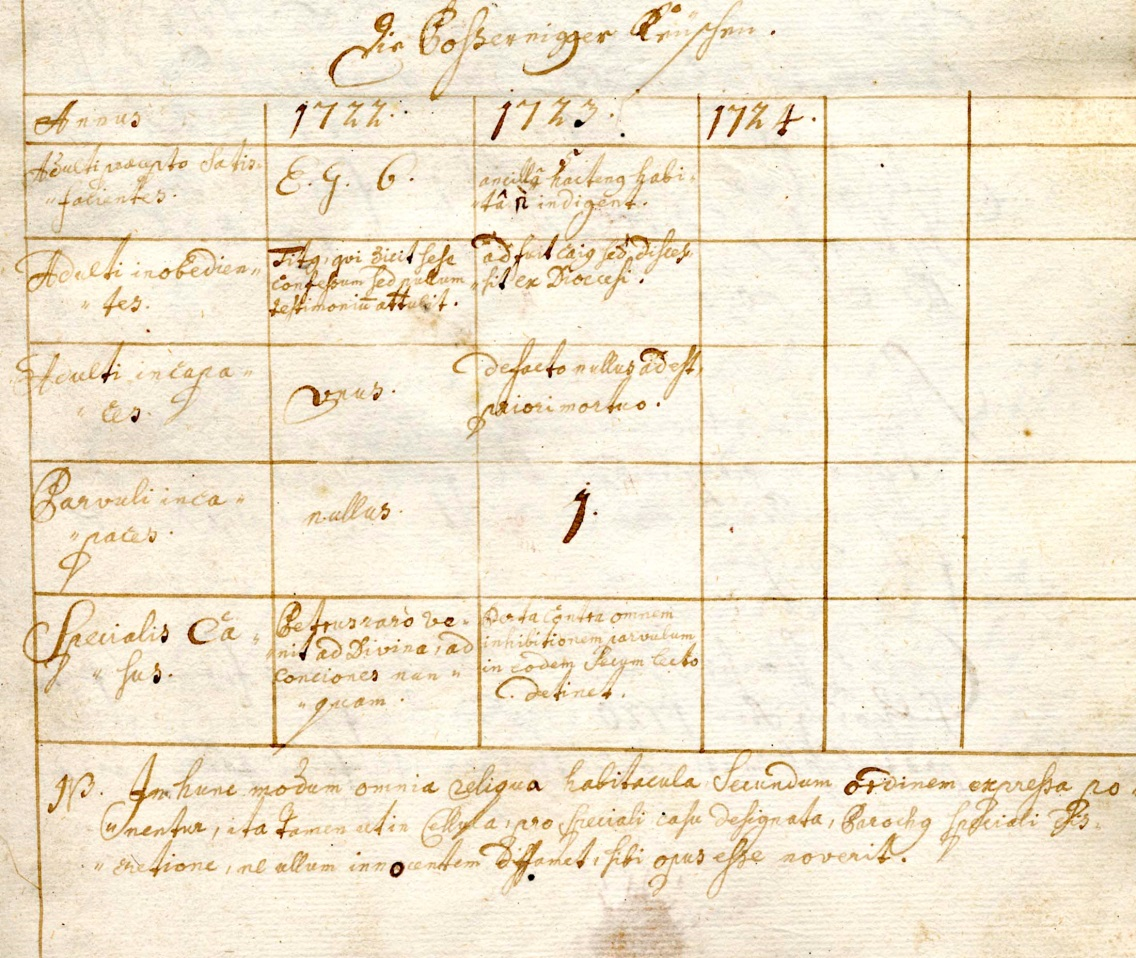 Die Poßernigger Keüschen.
Annus 1722. 1723. 1724.
Adulti præcepto Satis-
"facientes.
E. G. 6.
ancillâ hacteng habi-
"tâ n indigent.
Adulti inobedien"
" tes.
Titg, qvi dicit sese
confessum sed nullum
testimoniũ attulit.
adfuit Caig sed disces,
"sit ex Dioecesi.
Adulti incapa"
" ces.
vnus.
defacto nullus adest,
priori mortuo.
Parvuli inca"
"paces.
nullus.
1.
Specialis Ca"
" sus.
Petrus rarò ve"
"nit ad Divina, ad
Conciones nun"
"quam.
Berta contra omnem
inhibitionem parvulum
in eodem Secum lecto
detinet.
NB. In hunc modum omnia reliqua habitacula Secundum ordinem expressa po"
"nentur, ita tamen ut in Cellula, pro speciali casu designata, Parochg speciali Dis"
"cretione, ne ullum innocentem diffamet, sibi opus esse noverit.